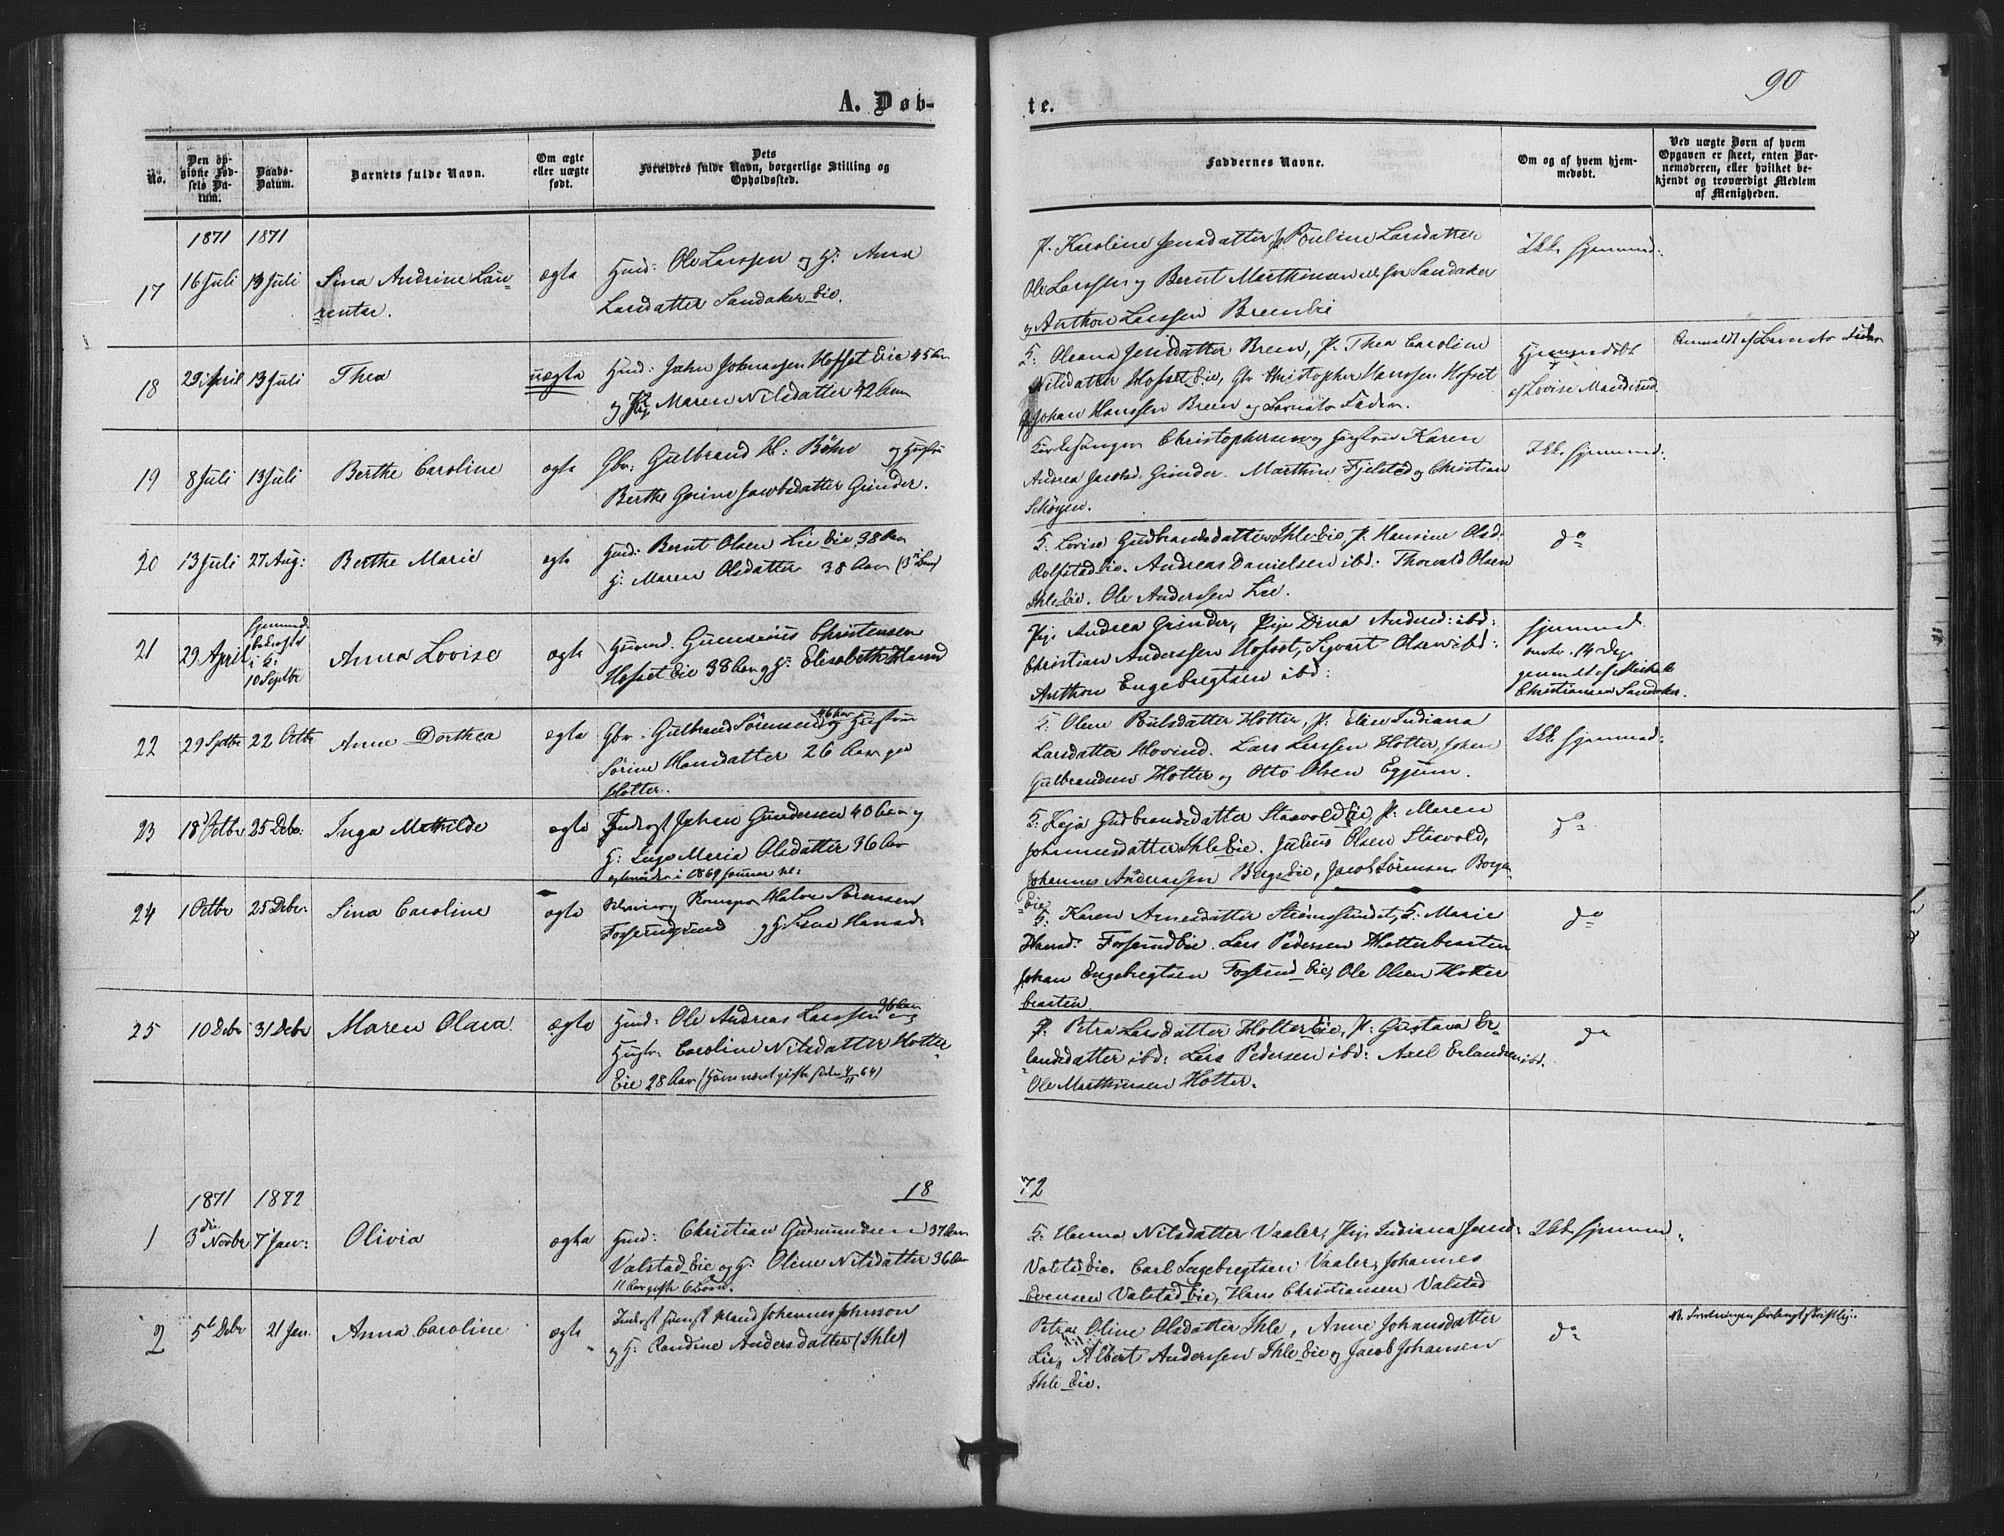 90
A. Døb-
te.
No.
Den op-
givne Fød-
sels Da-
tum.
Daabs-
Datum.
Barnets fulde Navn.
Om ægte
eller uægte
født.
Dets
Forældres fulde Navn, borgerlige Stilling og
Opholdssted.
Faddernes Navne.
Om og af hvem hjem-
medøbt.
Ved uægte Børn af hvem
Opgaven er skeet, enten Bar-
nemoderen, eller hvilket be-
kjendt og troværdigt Medlem
af Menigheden.
1871 1871
17 16 Juli 13 Juli Sina Andrine Lau-
rentse.
ægte
Huusm: Ole Larssen og H: Anna
Larsdatter Sandaker Eie.
P. Karoline Jensdatter P. Pouline Larsdatter
Ole Larssen og Bernt Marthinsen Sandaker
og Anthon Larssen Breen Eie
Ikke hjemmed:
18 29 April 13 Juli Thea
uægte
Huusm: John Johnssen Hofset Eie 45 Aar
og Pige Maren Nilsdatter 42 Aar
K: Oleana Jensdatter Breen, P. Thea Caroline
Nilsdatter Hofset Eie, Gbr Christopher Hanssen Hofset
Johan Hanssen Breen og Barnets Fader.
Hjemmedøbt
af Lovise Manderud
Anmeldt af Barnets Fader
19 8 Juli 13 Juli Berthe Caroline
ægte
Gbr: Gulbrand H: Bøhn og Hustru
Berthe Gorine Jacobsdatter Grinder.
Kirkesanger Christophersen og Hustru Karen
Andrea Jacobsd. Grinder. Marthin Fjelstad og Christian
Schøyen.
Ikke hjemmed:
20 13 Juli 27 Aug: Berthe Marie
ægte
Huusm: Bernt Olsen Lie Eie 38 Aar
H: Maren Olsdatter 38 Aar
K: Lovise Gudbrandsdatter Ihle Eie, P. Hansine Olsd:
Rolfstad Eie. Andreas Danielsen ibd: Thorvald Olsen
Ihle Eie. Ole Anderssen Lie.
do
21 29 April
Hjemmed.
bekræftet
i K:
10 Septbr
Anna Lovise
ægte
Huusm. Christensen
Hofset Eie 38 Aar og H: Elisabeth
Pige Andrea Grinder, Pige Dina Andersd: ibd:
Christian Anderssen Hofset, Sigvart Olsen ibd:
Anthon Engebregtsen ibd:
Hjemmed
14 Dage
gammelt af Michael
Christiansen Sandaker.
22 29 Septbr 22 Octbr Anne Dorthea
ægte
Gbr. Gulbrand Sørensen 46 Aar og Hustru
Sørine Hansdatter 26 Aar paa
Holter.
K: Olene Poulsdatter Holter, P: Elise Indiana
Larsdatter Hovind. Lars Larssen Holter, Johan
Gulbrandsen Holter og Otto Olsen Egjeim.
Ikke hjemmed:
23 18 Octbr 25 Debr: Inga Mathilde
ægte
Inderst Johan Gundersen 40 Aar og
H: Inge Maria Olsdatter 36 Aar
K: Kaja Gudbrandsdatter Stasvold Eie, P: Maren
Johannesdatter Ihle Eie. Julius Olsen Stasvold,
Johannes Andreassen Bergs Eie, Jacob Sørensen Borger
Eie
do
24 1 Octbr 25 Debr: Sina Caroline
ægte
Halvor Sørensen
Fosserud og H: Hansd:
K: Karen Arnesdatter Strømsundet, K: Marie
Hansd: Fosserud Eie. Lars Pedersen Holterbraaten
Johan Engebregtsen Fosserud Eie, Ole Olsen Holter
braaten
do
25 10 Debr 31 Debr Maren Olava.
ægte
Huusm: Ole Andreas Larssen 36 Aar og
Hustr: Caroline Nilsdatter Holter
Eie 28 Aar
P: Petra Larsdatter Holter Eie, P: Gustava Er-
landsdatter ibd: Lars Pedersen ibd: Axel Erlandsen ibd.
Ole Marthinsen Holter.
do
1871 1872
18
72
1 3die Novbr 7 Jan: Olivia
ægte
Huusm: Christian Gudmundsen 37 Aar
Valstad Eie og H: Oline Nilsdatter 36 Aar
11 Aar gifte 6 Børn.
K: Hanna Nilsdatter Vaaler, Pige Indiana Jansd:
Valstad Eie. Carl Engebregtsen Vaaler, Johannes
Evensen Valstad Eie, Hans Christiansen Valstad
Ikke hjemmed.
2 5te Debr 21 Jan. Anna Caroline
ægte
Inderst Johannes Johnsson
og H: Randine Andersdatter (Ihle)
Petra Oline Olsdatter Ihle, Anne Johansdatter
Lie, Albert Anderssen Ihle Eie og Jacob Johansen
Ihle Eie.
do